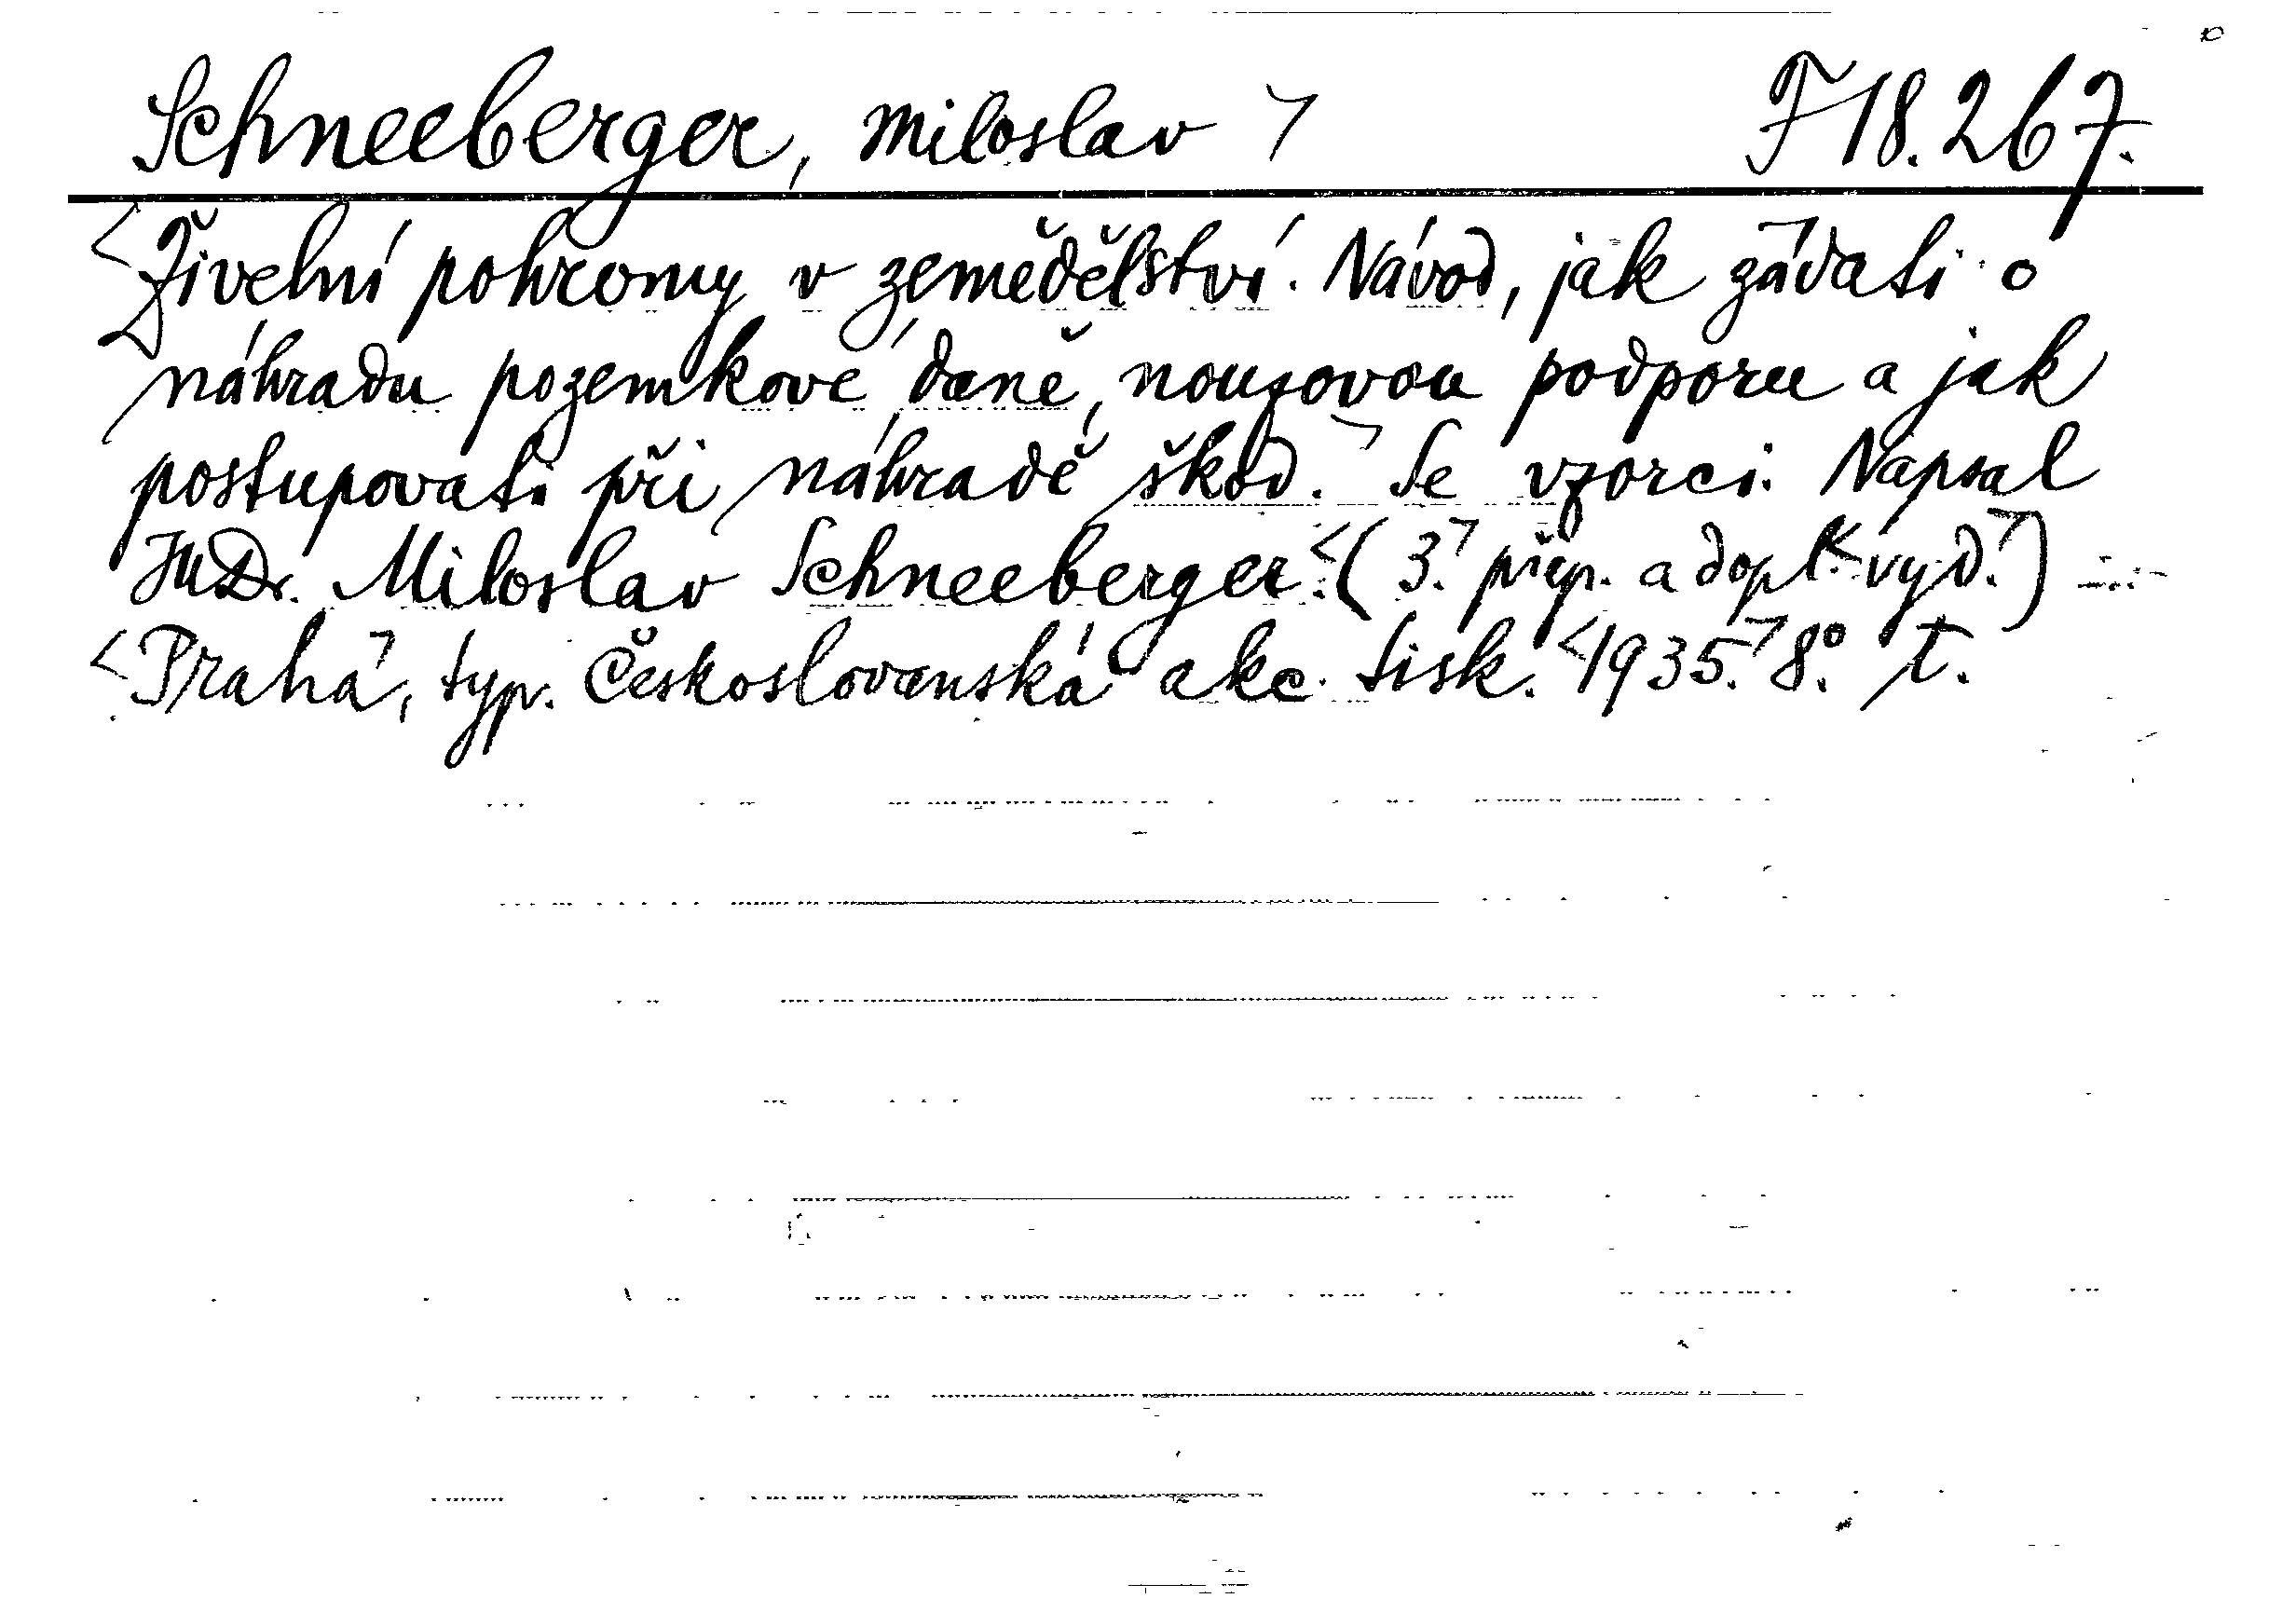 Schneeberger, Miloslav > F 18.267.
<Živelní pohromy v zemědělství. Návod, jak žádati o
náhradu pozemkové daně, nouzovou podporu a jak
postupovati při náhradě škod.> Se vzorci. Napsal
JUDr. Miloslav Schneeberger.<(3.> přep. a dopl.<vyd.>)
<Praha>, typ. Českoslovanská akc. tisk. <1935.> 8°. t.